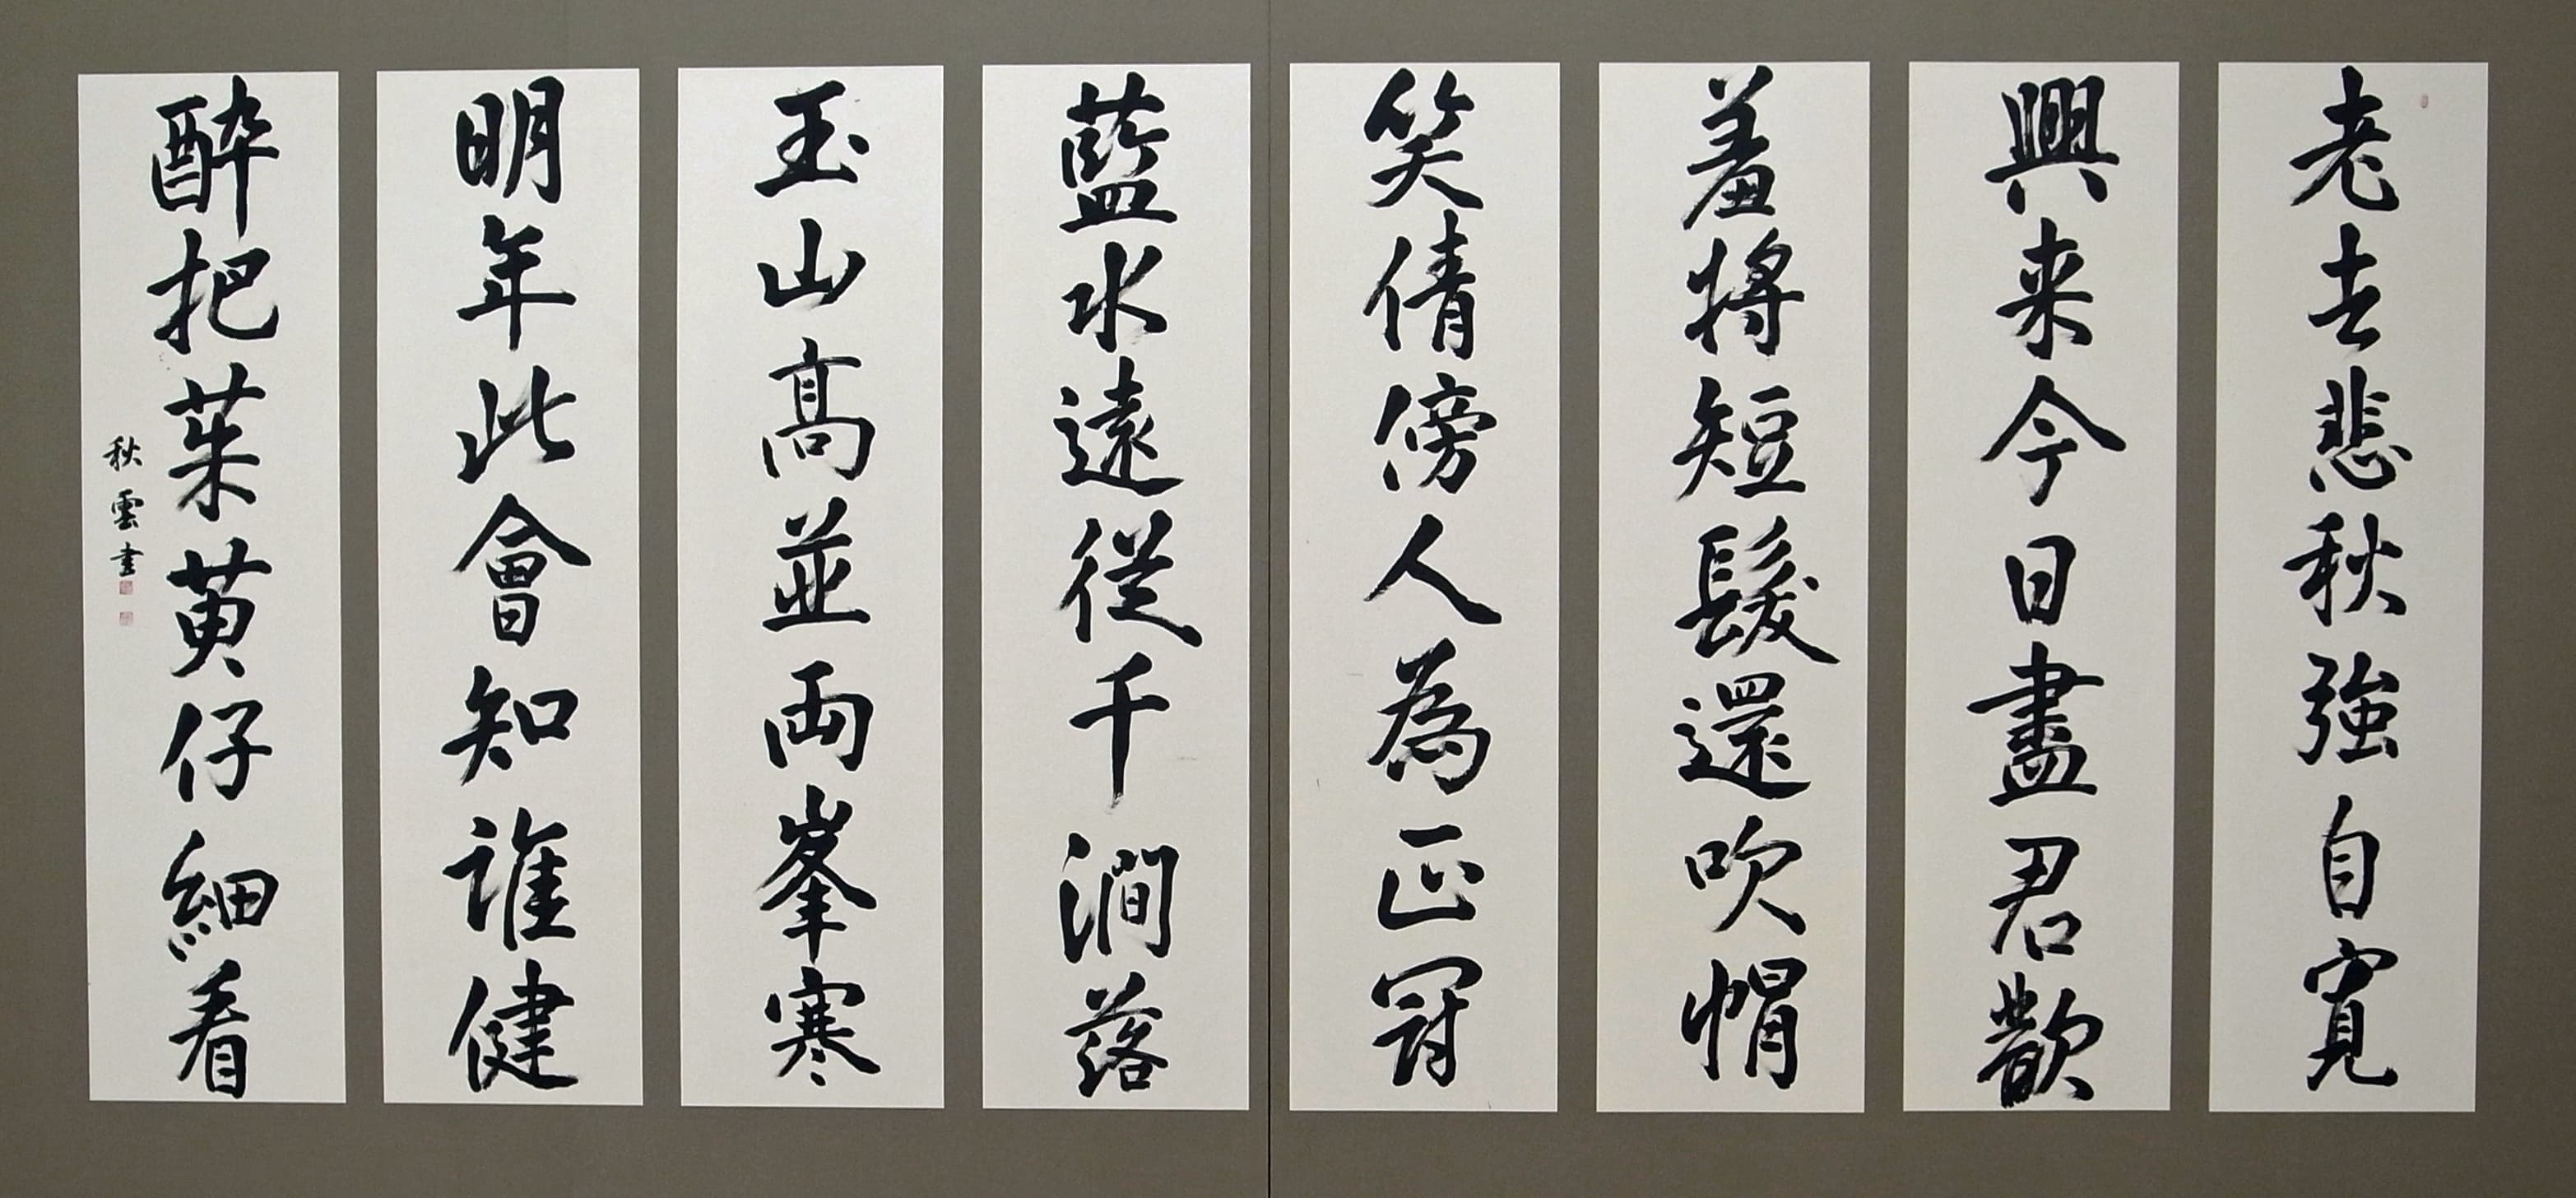 老去悲秋強自寬
興来今日盡君歡
羞將短髮還吹帽
笑倩傍人為正冠
藍水遠從千澗落
玉山高並両峯寒
明年此會知誰健
醉把茱萸仔細看
秋雲書